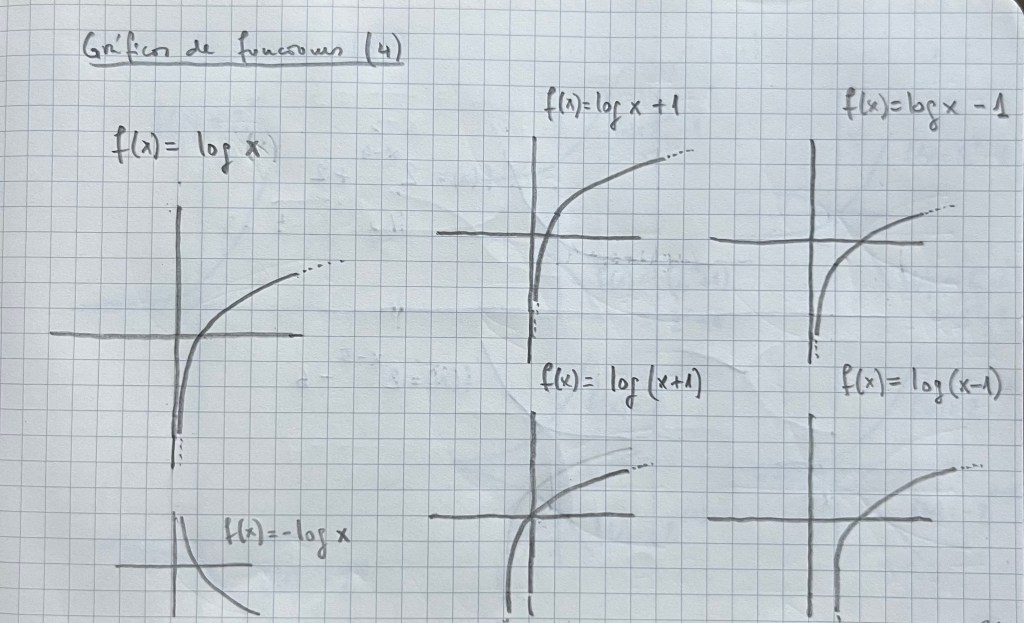 Gráficos de funciones (4)
f(x) = log x
f(x) = log x + 1
f(x) = log x - 1
f(x) = log (x+1)
f(x) = log (x-1)
f(x) = - log x